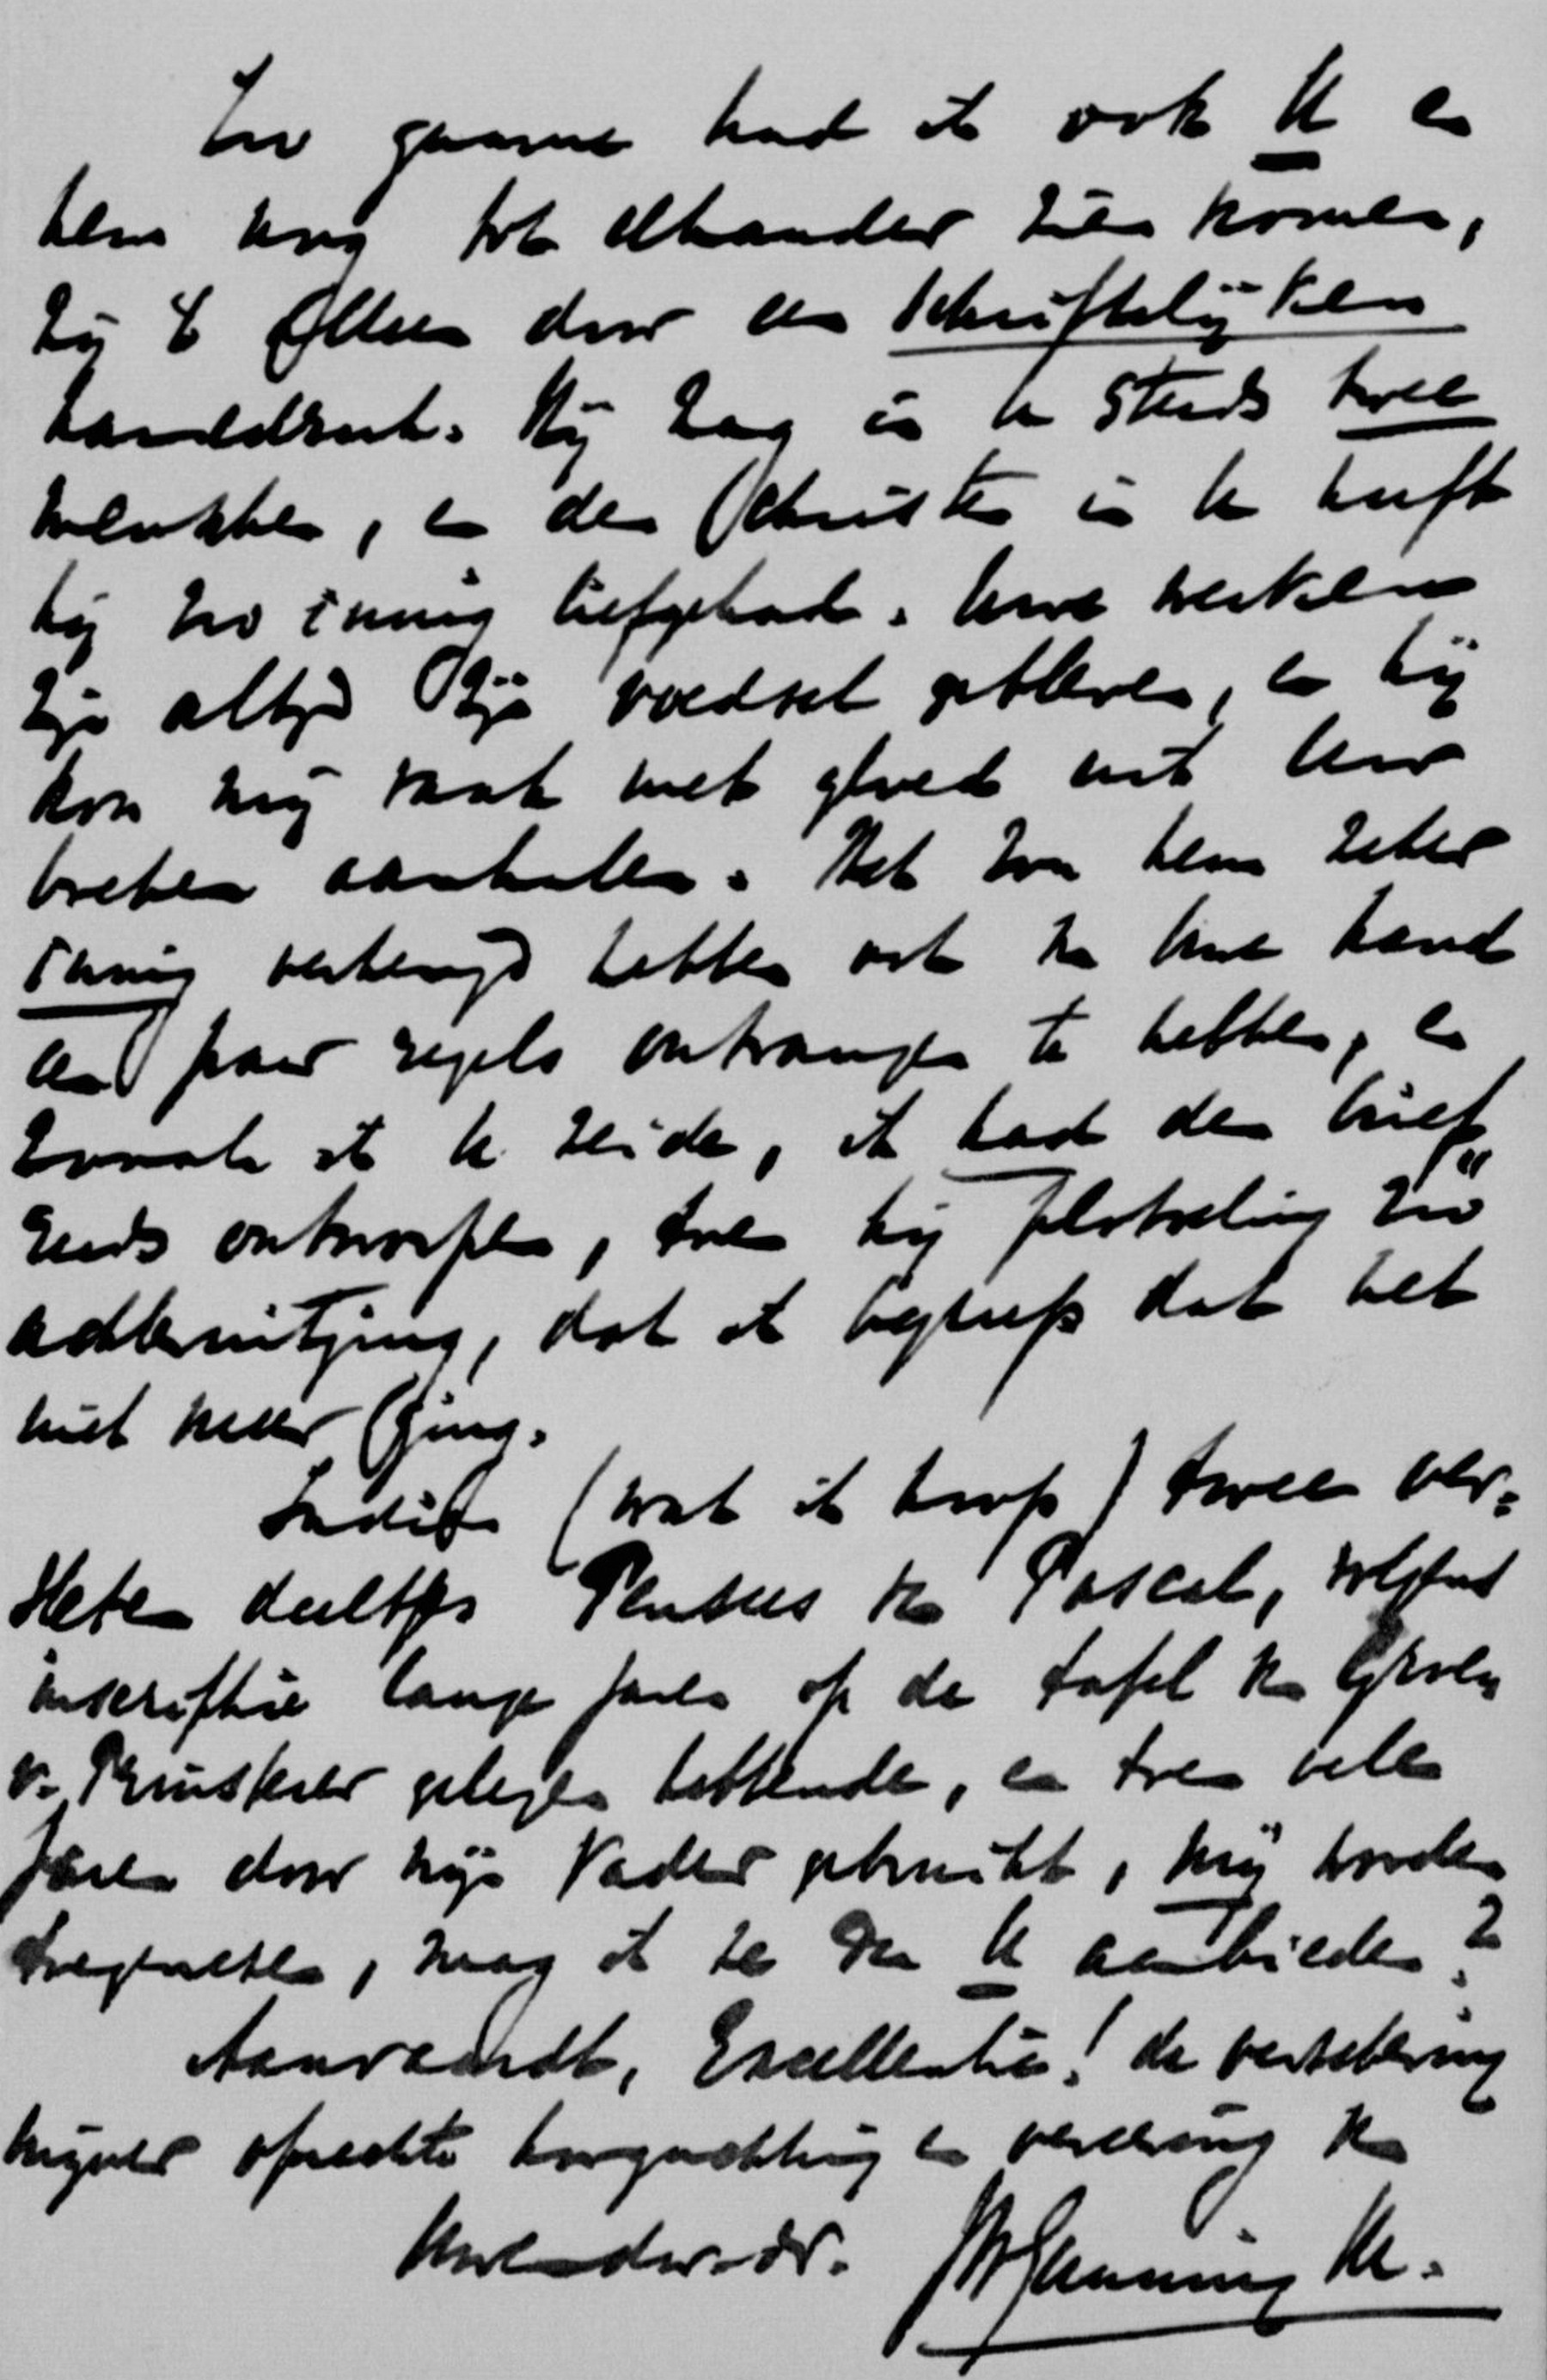 Zoo gaarne had ik ook U en
hem nog tot elkander zien komen,
zij 't alleen door een schriftelijken
handdruk. Hij zag in U steeds twee
menschen, en den Christen in U heeft
hij zoo innig liefgehad. Uwe werken
zijn altijd zijn voedsel gebleven, en hij
kon mij vaak met gloed uit Uw
boeken aanhalen. Het zou hem zeker
innig verheugd hebben ook van Uwe hand
een paar regels ontvangen te hebben, en
zooals ik U zeide, ik had den brief
reeds ontworpen, toen hij plotseling zóó
achteruitging, dat ik begreep dat het
niet meer ging.
Indien (wat ik hoop) twee ver-
sleten deeltjes Pensées van Pascal, volgens
inscriptie lange jaren op de tafel van Groen
v. Prinsterer gelegen hebbende, en toen vele
jaren door mijn Vader gebruikt, mij worden
toegewezen, mag ik ze dan U aanbieden?
Aanvaardt, Excellentie! de verzekering
mijner oprechte hoogachting en vereering van
Uwen dw. dr. JH Gunning JHz.